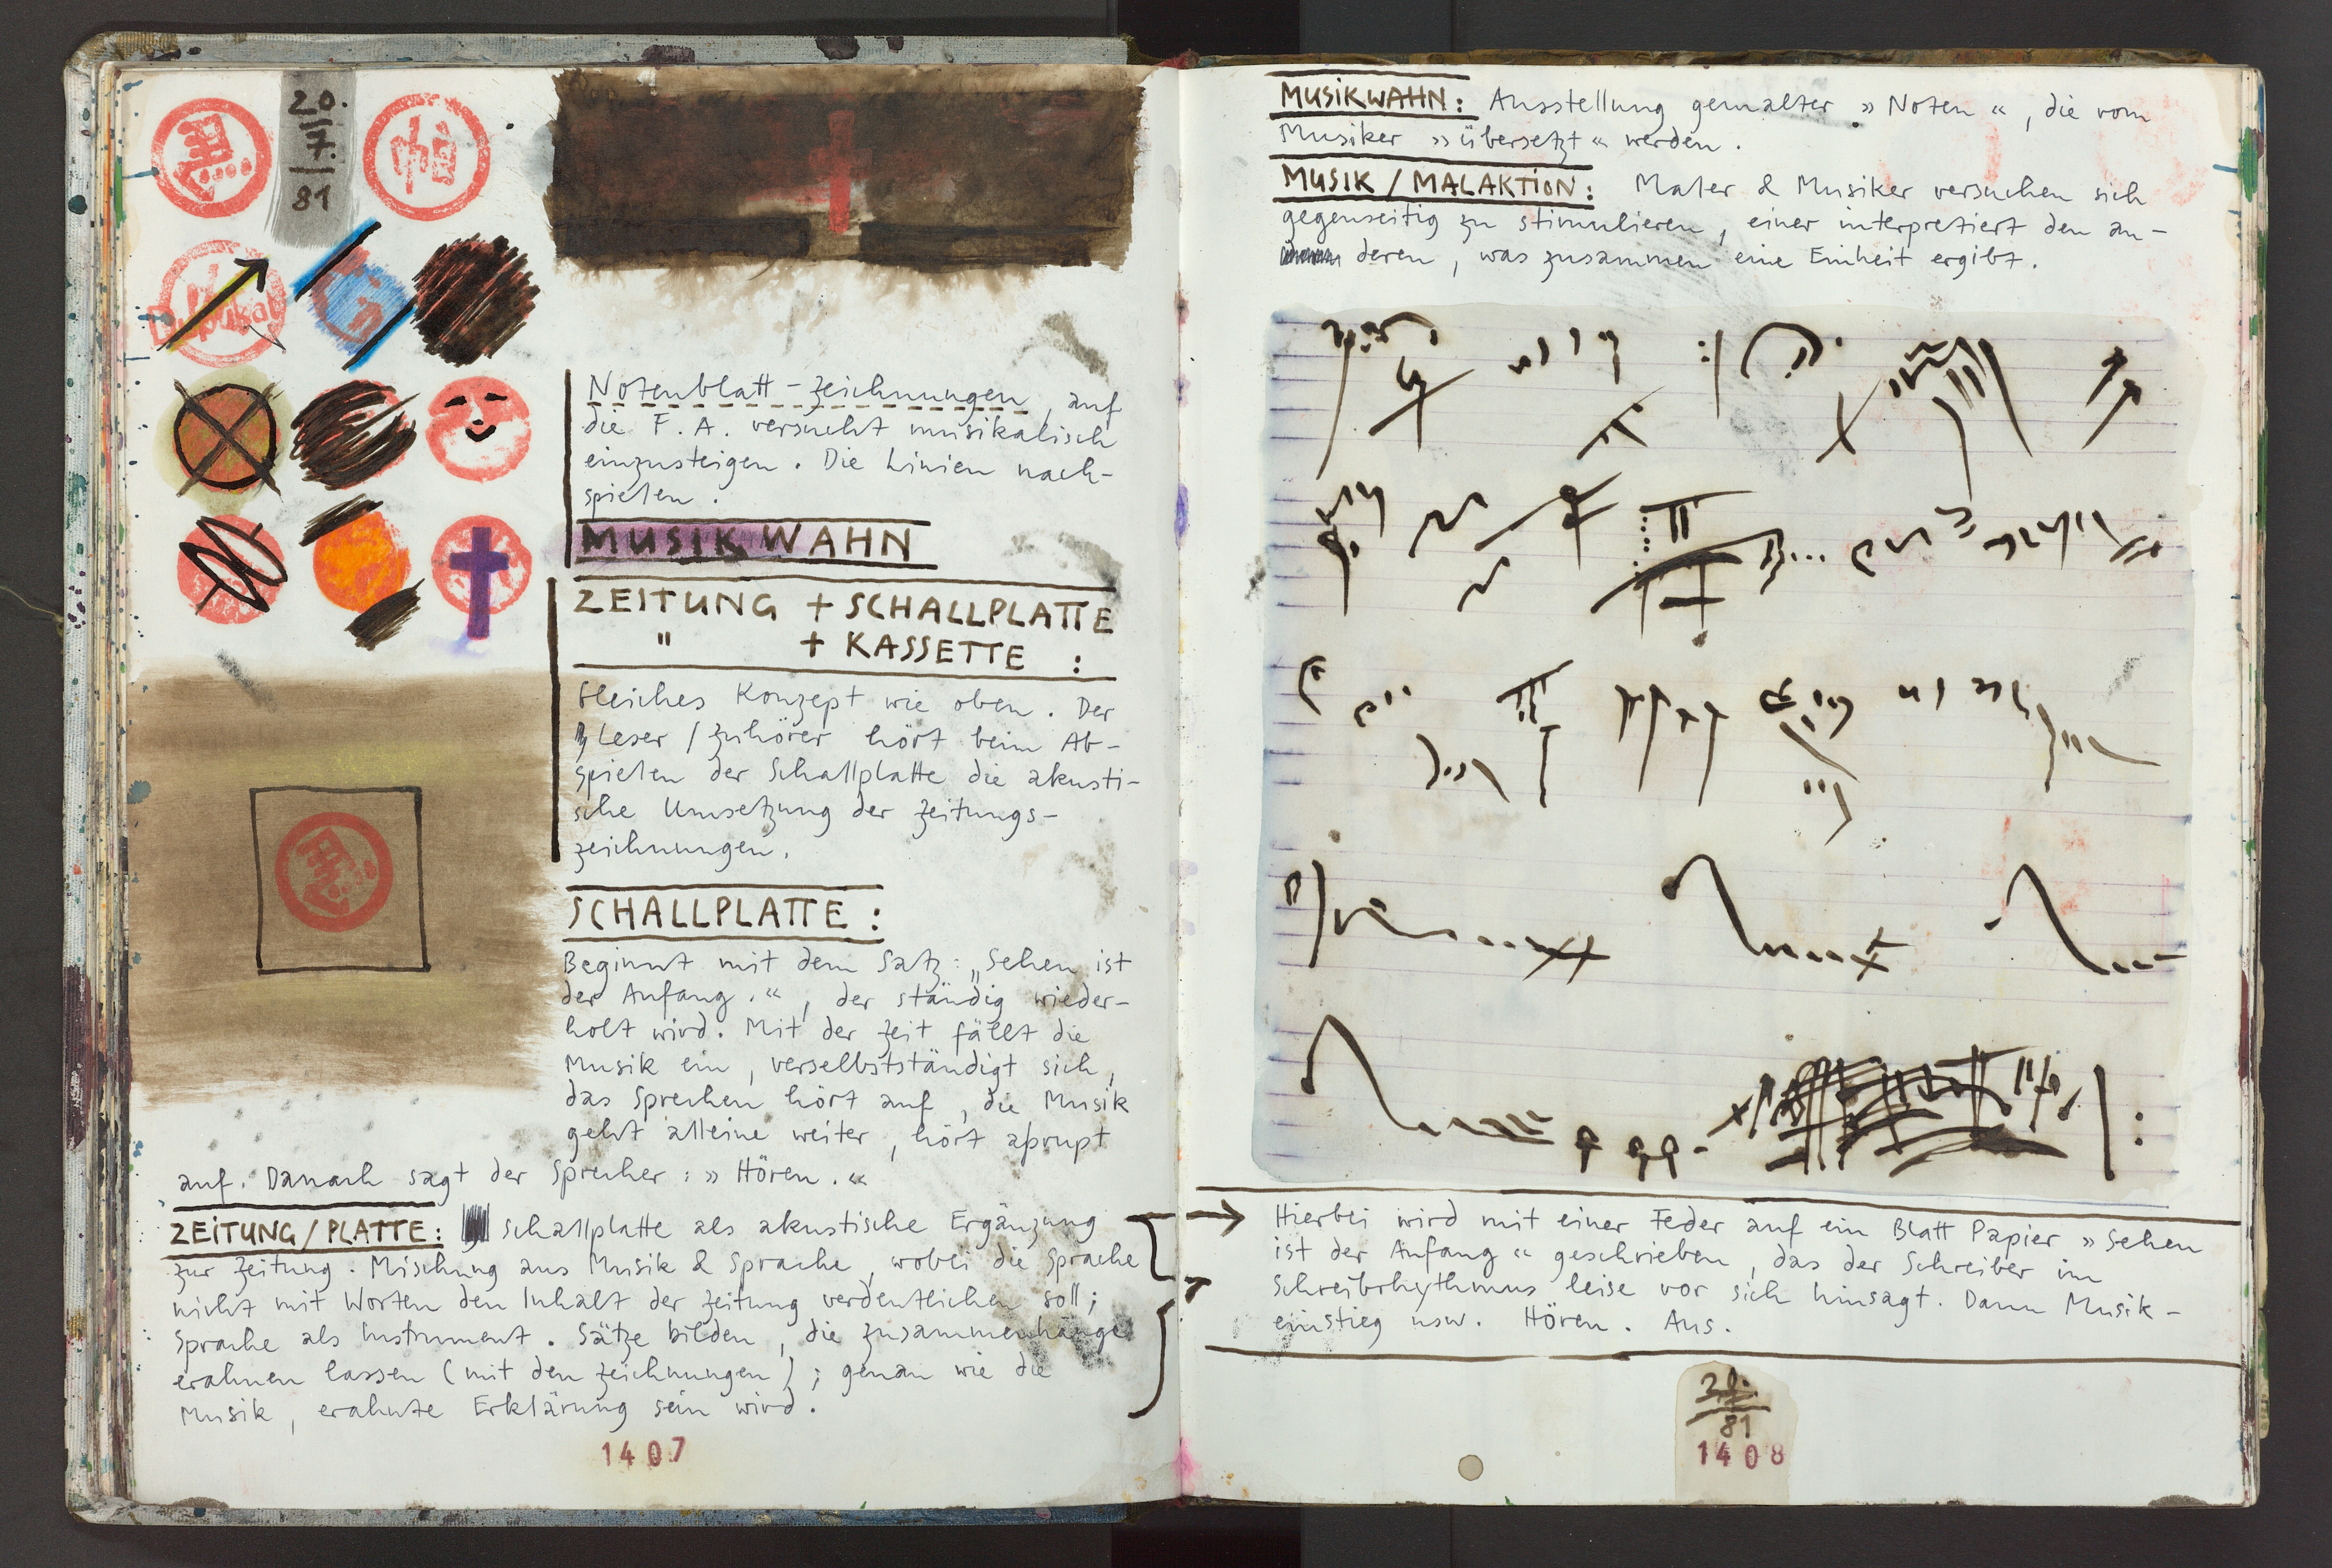 20.
7.
81
Duplikat
Notenblatt-Zeichnungen, auf
die F. A. versucht musikalisch
einzusteigen. Die Linien nach-
spielen.
MUSIKWAHN
ZEITUNG + SCHALLPLATTE
" + KASSETTE :
Gleiches Konzept wie oben. Der
Leser / Zuhörer hört beim Ab-
spielen der Schallplatte die akusti-
sche Umsetzung der Zeitungs-
zeichnungen.
SCHALLPLATTE :
Beginnt mit dem Satz: „Sehen ist
der Anfang.“, der ständig wieder-
holt wird. Mit der Zeit fällt die
Musik ein, verselbstständigt sich,
das Sprechen hört auf, die Musik
geht alleine weiter, hört aprupt
auf. Danach sagt der Sprecher: » Hören. «
ZEITUNG / PLATTE: Schallplatte als akustische Ergänzung
zur Zeitung. Mischung aus Musik & Sprache, wobei die Sprache
nicht mit Worten den Inhalt der Zeitung verdeutlichen soll;
Sprache als Instrument. Sätze bilden, die Zusammenhänge
erahnen lassen (mit den Zeichnungen); genau wie die
Musik, erahnte Erklärung sein wird.
1407
MUSIKWAHN: Ausstellung gemalter » Noten «, die vom
Musiker » übersetzt « werden.
MUSIK / MALAKTION: Maler & Musiker versuchen sich
gegenseitig zu stimulieren, einer interpretiert den an-
deren, was zusammen eine Einheit ergibt.
Hierbei wird mit einer Feder auf ein Blatt Papier » Sehen
ist der Anfang « geschrieben, das der Schreiber im
Schreibrhythmus leise vor sich hinsagt. Dann Musik-
einstieg usw. Hören. Aus.
81
1408